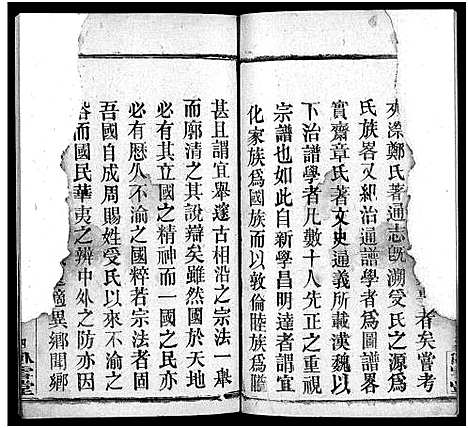 者矣嘗考
夾漈鄭氏著通志旣溯受氏之源爲
氏族畧又紐治通譜學者爲圖譜畧
實齋章氏著文史通義所載漢魏以
下治譜學者凡數十人先正之惓惓
宗譜也如此自新學昌明達識者謂宜
化家族爲國族而以敦倫睦族爲隘
甚且謂宜舉邃古相沿之宗法一舉
而廓清之其說辯矣雖然國於天地
必有其立國之精神而一國之民亦
必有歷久不渝之國粹若宗法者固
吾國自成周賜姓受氏以來不渝之
而國民華夷之辨中外之防亦因
適異鄉聞鄉